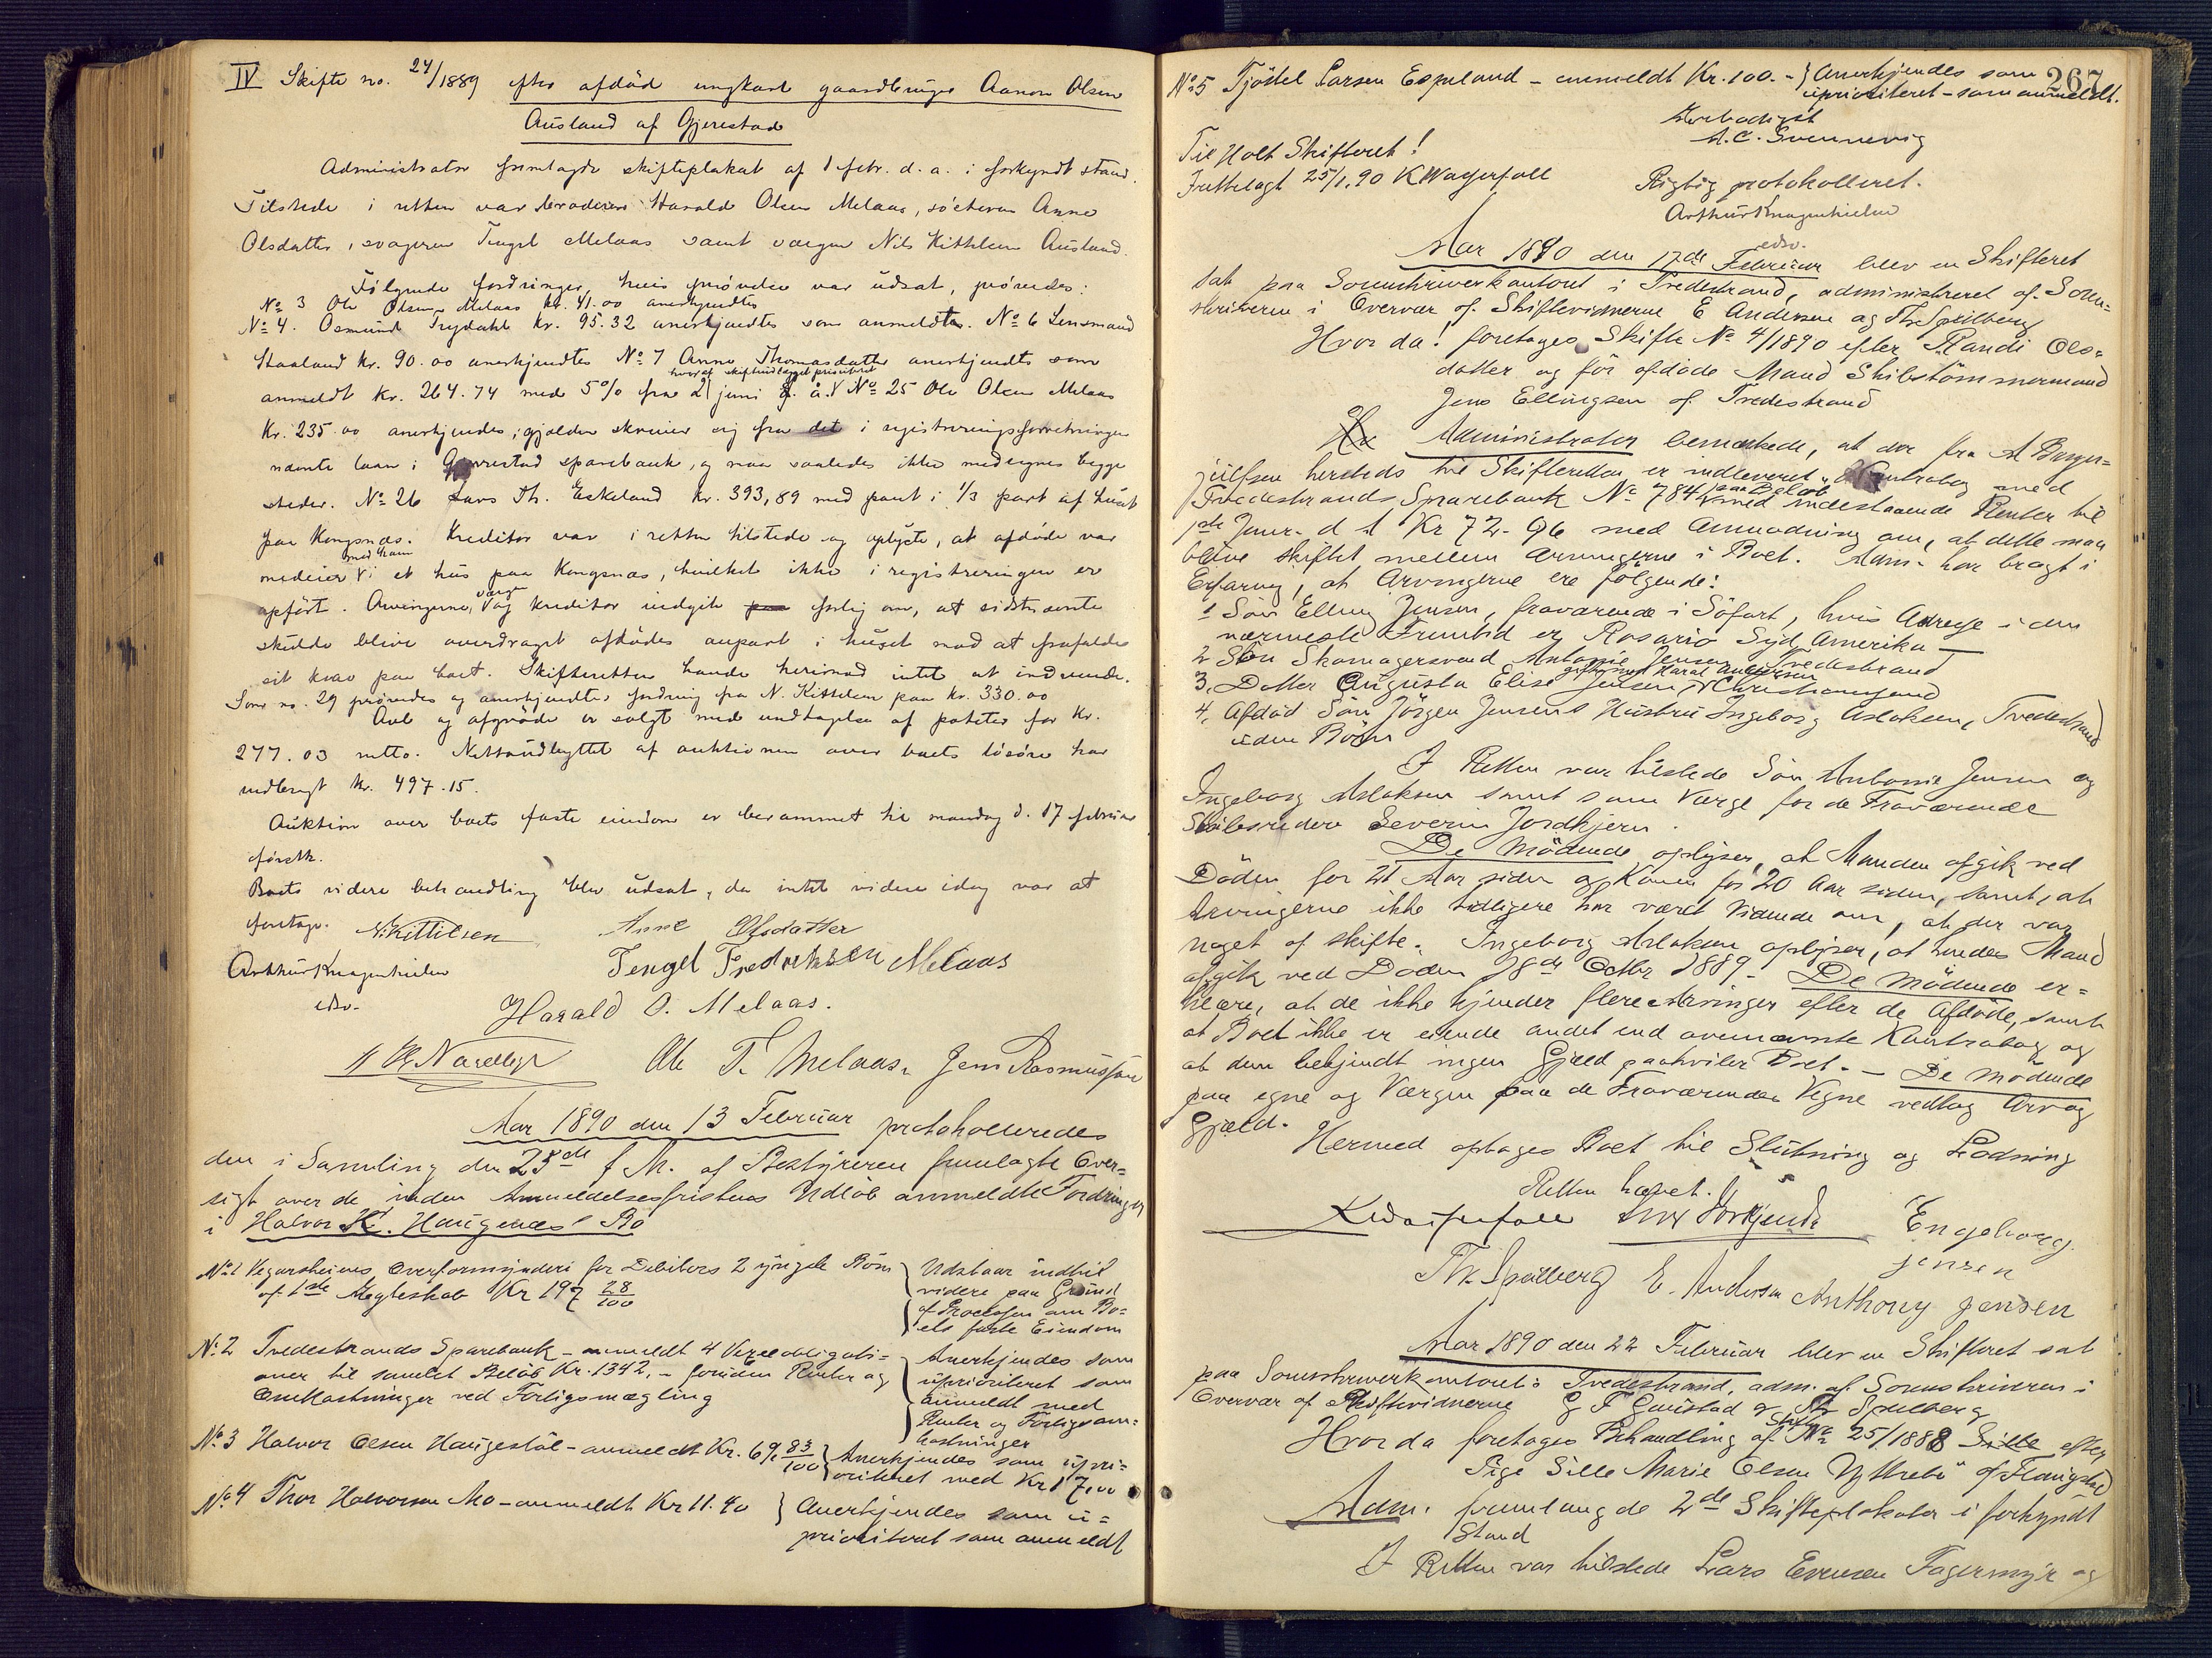 IV Skifte no. 24/1889 efter afdöd ungkarl gaardbruger Aanon Olsen
Ausland af Gjerestad
Administrator fremlagde skifteplakat af 1 febr. d. a. i forkyndt stand.
Tilstede i retten var broderen Harald Olsen Melaas, söstren Anne
Olsdatter, svogeren Tengel Melaas samt værgen Nils Kittelsen Ausland.
Fölgende fordringer, hvis prövelse var udsat, prövedes:
No 3 Ole Olsen Melaas kr. 41.00 anerkjendtes
No 4. Osmund Trydahl kr. 95.32 anerkjendtes som anmeldte. No 6 Lensmand
Staaland kr. 90.00 anerkjendtes No 7 Anne Thomasdatter anerkjendts som
hvoraf skifteudlægget prioriteret
anmeldt kr. 264.74 med 5% fra 2 juni f. å. No 25 Ole Olsen Melaas
kr. 235.00 anerkjendes; gjælden skriver sig fra det i registreringsforretningen
nævnte laan i Gjerrestad sparebank, og maa saaledes ikke medregnes begge
steder. No 26 Lars Th. Eskeland kr. 393,89 med pant i 1/3 part af huset
paa Kongsnæs. Kreditor var i retten tilstede og oplyste, at afdöde var
med ham
medeier i et hus paa Kongsnæs, hvilket ikke i registreringen er
værge
opfört. Arvingerne, og kreditor indgik paa forlig om, at sidstnævnte
skulde blive overdraget afdödes anpart i huset mod at frafalde
sit krav paa boet. Skifteretten havde herimod intet at indvende.
Som no. 29 prövedes og anerkjendtes fordring fra N. Kittelsen paa kr. 330.00
Avl og afgröde er solgt med undtagelse af poteter for kr.
277.03 netto. Nettoudbyttet af auktionen over boets lösöre har
indbragt kr. 497.15.
Auktion over boets faste eiendom er berammet til mandag d. 17 februar
förstk.
Boets videre behandling blev udsat, da intet videre idag var at
foretage. N. Kittilsen Anne Olsdatter
Arthur Knagenhielm Tengel Fredriksen Melaas
edsv. Harald O. Melaas.
Ole T. Melaas, Jens Rasmussen
Aar 1890 den 13 Februar protokolleredes
den i Samling den 25de f. M. af Bestyreren fremlagte Over=
sigt over de inden Anmeldelsesfristens Udlöb anmeldte Fordringer
i Halvor K. Haugenes' Bo
No 1 Vegarsheiens Overformynderi for Debitors 2 yngste Börn
af 1ste Ægteskab Kr 197 28/100
Udstaar indtil
videre paa Grund
af Processen om Bo=
ets faste Eiendom
No 2 Tvedestrands Sparebank - anmeldt 4 Vexelobligati=
oner til samlet Belöb Kr. 1342,- foruden Renter og
Omkostninger ved Forligsmægling
Anerkjendes som
uprioriteret som
anmeldt med
Renter og Forligsom=
kostninger
No 3 Halvor Olsen Haugestöl - anmeldt Kr. 69 83/100
Anerkjendes som upri=
oriteret med Kr 17,00
No 4 Thor Halvorsen Mo - anmeldt Kr 11.40
Anerkjendes som u=
prioriteret som anmeldt
267
No 5 Tjöstel Larsen Espeland - anmeldt Kr. 100.- Anerkjendes som
uprioriteret - som anmeldt.
Ærbödigst
A. C. Svennevig
Til Holt Skifteret!
Fremlagt 25/1.90 K Wagerfall
Rigtig protokolleret.
Arthur Knagenhielm
edsv.
Aar 1890 den 17de Februar blev en Skifteret
sat paa Sorenskriverkontoret i Tvedestrand, administreret af Soren=
skriveren i Overvær af Skiftevidnerne E Andersen og Th. Spilberg
Hvor da! foretages Skifte No 4/1890 efter Randi Ols=
datter og för afdöde Mand Skibstömmermand
Jens Ellingsen af Tvedestrand
Administrator bemærkede, at der fra A Borger=
julfsen herstds til Skifteretten er indleveret Kontrabog med
Tvedestrands Sparebank No 784 med indestaaende Renter til
paa Belöb
1ste Janr. d A Kr 72.96 med Anmodning om, at dette maa
blive skiftet mellem Arvingerne i Boet. Adm. har bragt i
Erfaring, at Arvingerne ere fölgende:
1 Sön Elling Jensen, fraværende i Söfart, hvis Adresse i den
nærmeste Fremtid er Rosario Syd Amerika
2 Sön Skomagersvend Antonie Jensen Tvedestrand
3. Datter Augusta Elise Jensen, Christianssand
4. Afdöd Sön Jörgen Jensens Hustru Ingeborg Aslaksen, Tvedestrand
uden Börn
I Retten var tilstede Sön Antonie Jensen og
Ingeborg Aslaksen samt som Værge for de Fraværende
Skibsreder Severin Jordkjern.
De Mödende oplyser, at Manden afgik ved
Döden for 21 Aar siden og Konen for 20 Aar siden, samt, at
Arvingerne ikke tidligere har været vidende om, at der var
noget at skifte. Ingeborg Aslaksen oplyser, at hendes Mand
afgik ved Döden 18de Octbr 1889. De Mödende er=
klære, at de ikke kjender flere Arvinger efter de Afdöde, samt
at Boet ikke er eiende andet end ovennævnte Kontrabog og
at dem bekjendt ingen Gjæld paahviler Boet. - De Mödende
paa egne og Værgen paa de Fraværendes Vegne vedtog Arv og
Gjæld.
Hermed optages Boet til Slutning og Lodning
Retten hævet.
K Wagerfall Ingeborg
Jensen
Th. Spilberg E. Andersen Anthony Jensen
Aar 1890 den 22 Februar blev en Skifteret sat
paa Sorenskriverkontoret i Tvedestrand, adm. af Sorenskriveren i
Overvær af Skiftevidnerne G F Gaustad og Th Spilberg
Hvor da foretages Behandling af Skifte No 25/1888 Sille efter
Pige Sille Marie Olsen Ytterbö af Flaugstad
Adm. fremlangde 2de Skifteplakater i forkyndt
Stand
I Retten var tilstede Lars Evensen Fagermyr og